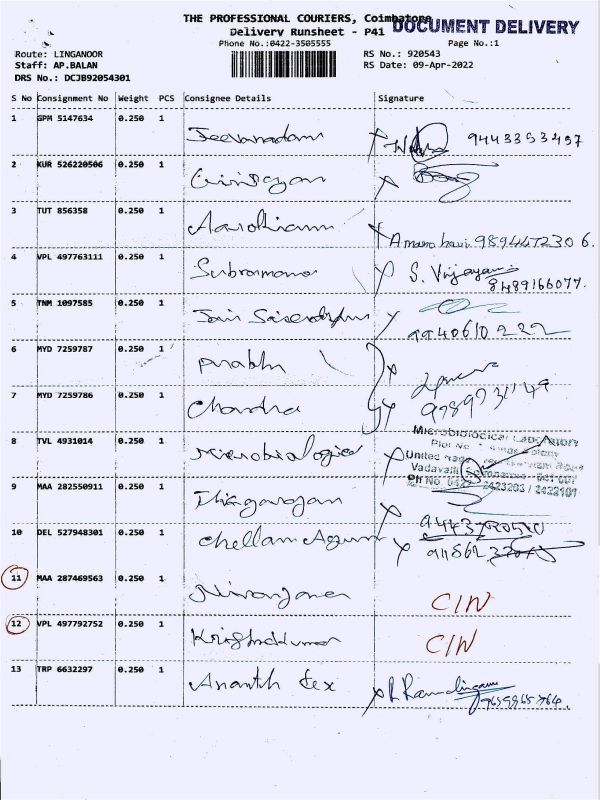 THE PROFESSIONAL COURIERS, Coimbatore
DOCUMENT DELIVERY
Delivery Runsheet - P41
Phone No.:0422-3505555
Page No.:1
Route: LINGANOOR
RS No.: 920543
Staff: AP.BALAN
RS Date: 09-Apr-2022
DRS No.: DCJB92054301
S No Consignment No Weight PCS Consignee Details Signature
1 GPM 5147634 0.250 1 Jeevanadam 9443353457
2 KUR 526220506 0.250 1
3 TUT 856358 0.250 1 Aarokiam 9894472306.
4 VPL 497763111 0.250 1 Subramanar S. Vijayan 8489166077.
5 TNM 1097585 0.250 1 Jain 9940610222
6 MYD 7259787 0.250 1 Prabhu
7 MYD 7259786 0.250 1 Chandra
8 TVL 4931014 0.250 1 Microbiological Microbiological Laboratory
Vadavalli Coimbatore - 641 001
Ph No. 0422 - 2423203 / 2422101
9 MAA 282550911 0.250 1 Thingarajan
10 DEL 527948301 0.250 1 Chellam
11 MAA 287469563 0.250 1 Niranjanan C/N
12 VPL 497792752 0.250 1 Krishnakumar C/N
13 TRP 6632297 0.250 1 Ananth tex R Ramalingam